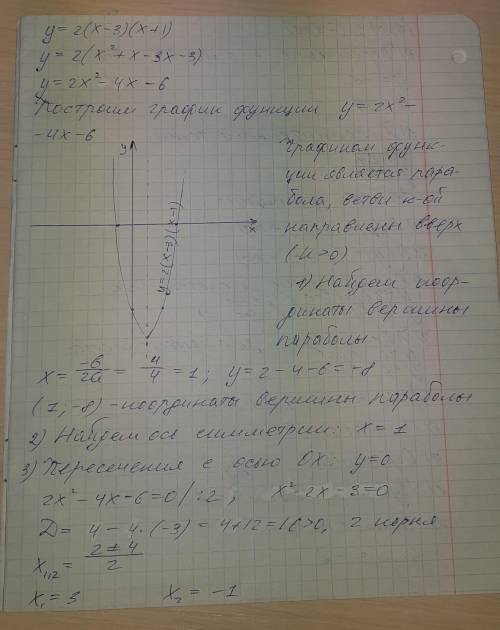 y=2(x-3)(x+1)
y=2(x²+x-3x-3)
y=2x²-4x-6
Построим график функции y=2x²-
-4x-6
y
x
y=2(x-3)(x-1)
Графиком функ-
ции является пара-
бола, ветви к-ой
направлены вверх
(-к>0)
1) Найдем коор-
динаты вершины
параболы:
x = -b/2a = 4/4 = 1; y=2-4-6=-8
(1;-8) - координаты вершины параболы
2) Найдем ось симметрии: x=1
3) Пересечения с осью OX: y=0
2x²-4x-6=0/:2; x²-2x-3=0
D= 4-4·(-3)=4+12=16>0, 2 корня
x₁,₂= (2±4)/2
x₁=3 x₂=-1